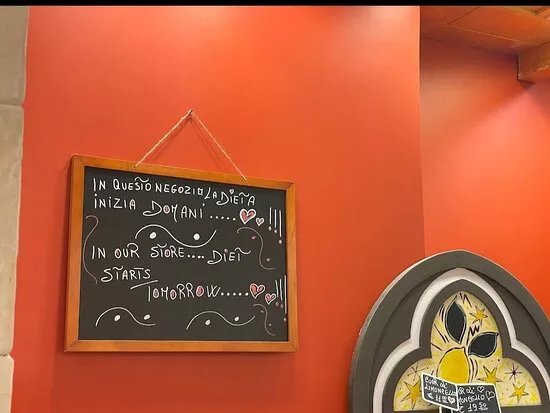 IN QUESTO NEGOZIO LA DIETA
INIZIA DOMANI ..... !!!
IN OUR STORE.... DIET
STARTS
TOMORROW..... !!!
CUOR DI
LIMONCELLO
€
DI
19,50